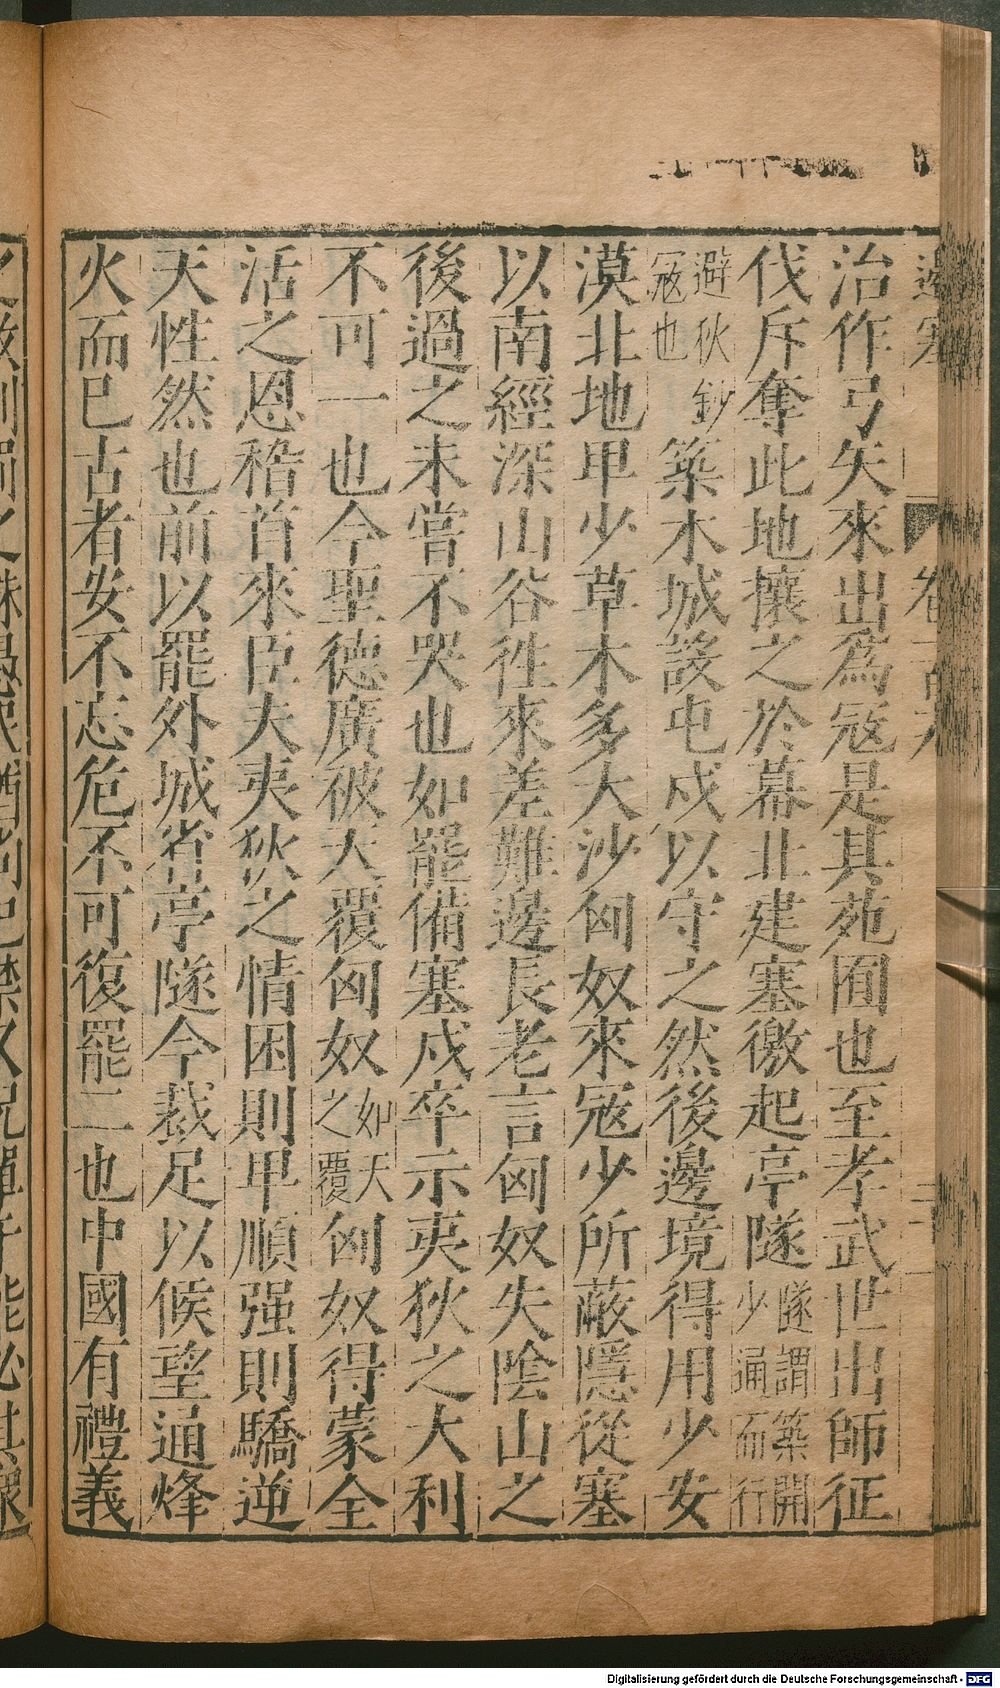 治作弓矢來出為寇是其苑囿也至孝武世出師征
伐斥奪此地攘之於幕北建塞徼起亭隧隧謂築開少通而行
避狄鈔寇也築木城設屯戍以守之然後邊境得用少安
漠北地甲少草木多大沙匈奴來寇少所蔽隱從塞
以南經深山谷往來差難邊長老言匈奴失陰山之
後過之未嘗不哭也如罷備塞戍卒示夷狄之大利
不可一也今聖德廣被天覆匈奴如天之覆匈奴得蒙全
活之恩稽首來臣夫夷狄之情困則甲順强則驕逆
天性然也前以罷外城省亭隧今裁足以候望通烽
火而已古者安不忘危不可復罷二也中國有禮義
Digitalisierung gefördert durch die Deutsche Forschungsgemeinschaft - DFG